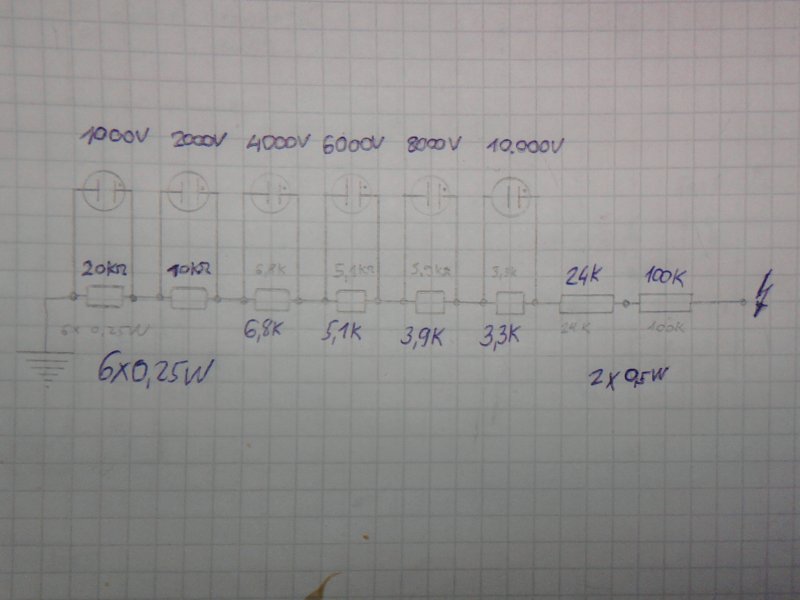 1000V 2000V 4000V 6000V 8000V 10.000V
20kΩ 10kΩ 6,8k 5,1kΩ 3,3k 24K 100K
6x 0,25W 6,8K 5,1K 3,9K 3,3K 24K 100k
6x0,25W 2x0,5W